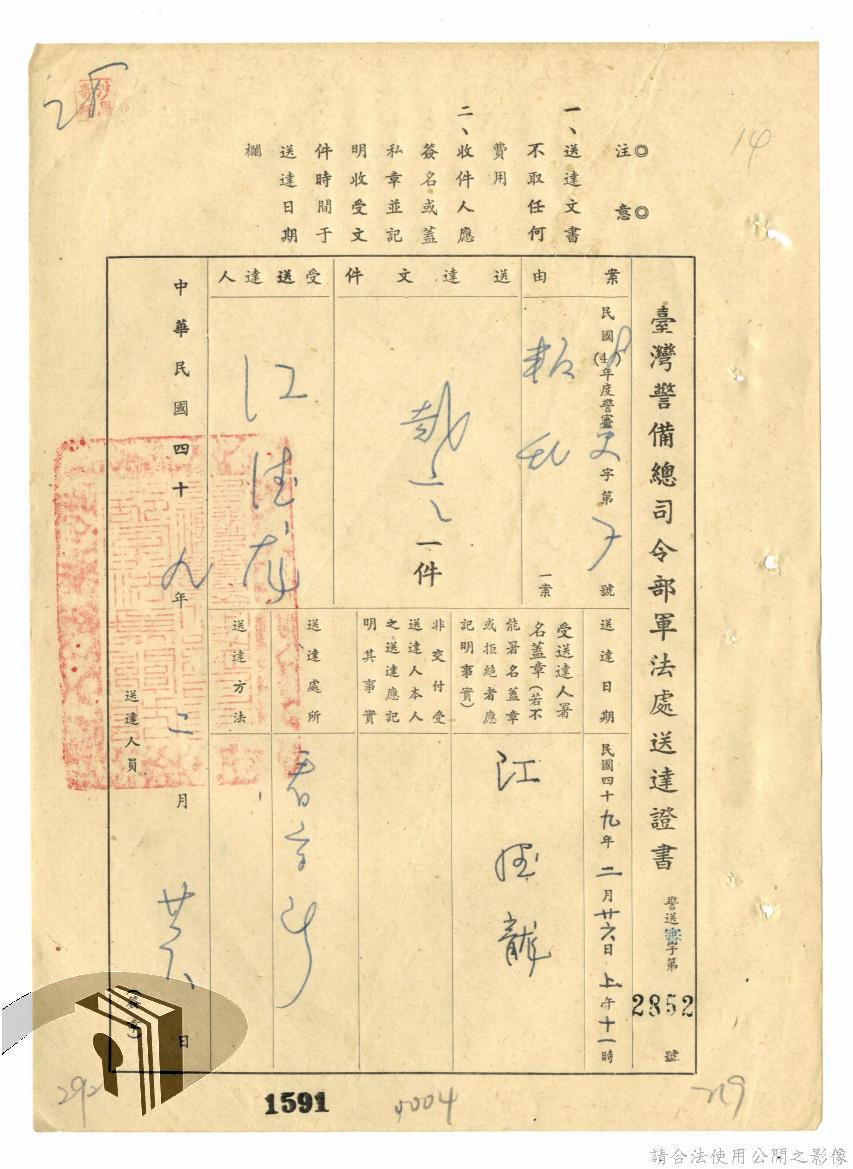 14
◎注意◎
一、送達文書
不取任何
費用
二、收件人應
簽名或蓋
私章並記
明收受文
件時間于
送達日期
欄
臺灣警備總司令部軍法處送達證書
警送審字第2852號
案由
民國(48)年度警審更字第7號
叛亂
一案
送達文件
裁定
一件
受送達人
江德龍
送達日期
民國四十九年二月廿六日上午十一時
受送達人署
名蓋章(若不
能署名蓋章
或拒絕者應
記明事實)
江德龍
非交付受
送達人本人
之送達應記
明其事實
送達處所
看守所
送達方法
中華民國四十九年二月廿六日
送達人員
1591
5004
292
219
請合法使用公開之影像